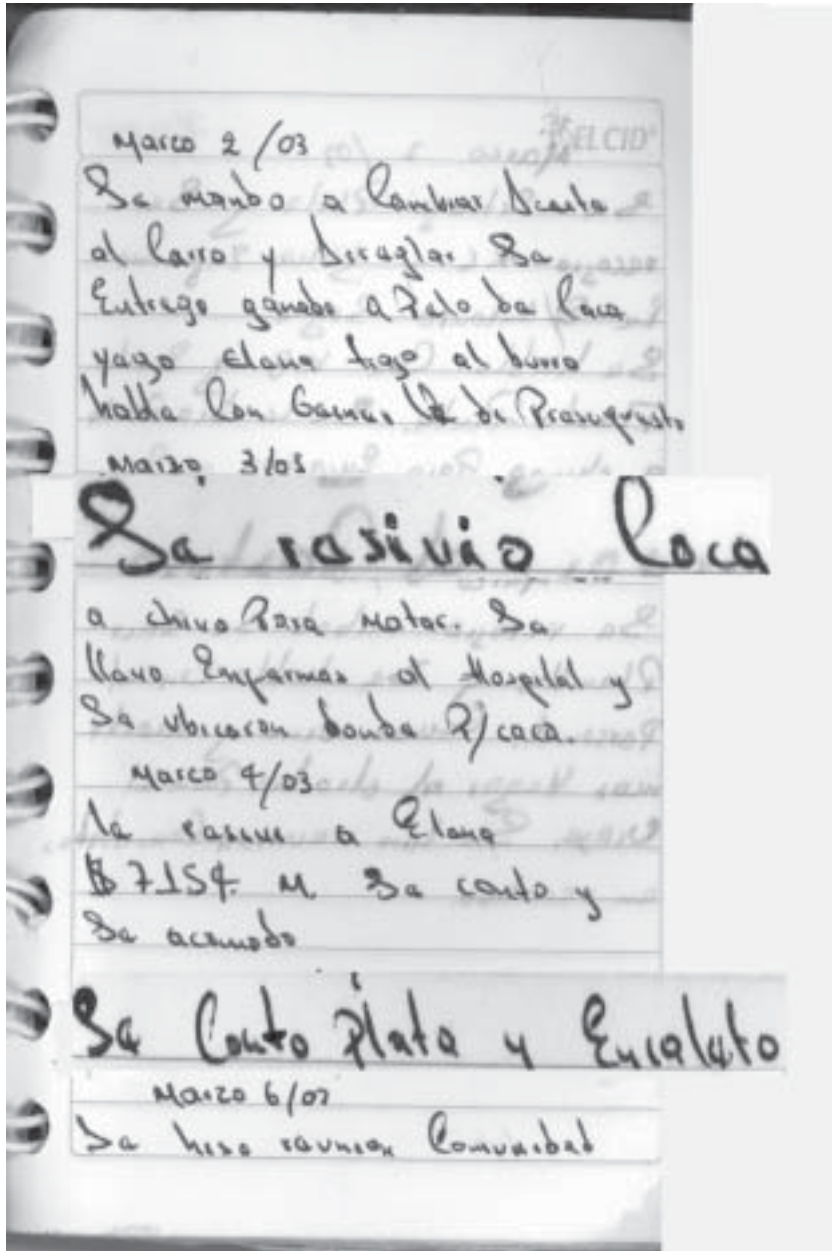 ELCID
Marzo 2/03
Se mando a Cambiar Aceite
al Carro y Arreglar. Se
Entrego ganado a Pelo de Caca
yego Elena trajo al burro
habla Con Va de Presupuesto
Marzo 3/03
Se resivio Coca
a chivo Para Matar. Se
llevo Enfermas al Hospital y
Se ubicaron donde P/ coca.
Marzo 4/03
le a Elena
$ 7154. M. Se conto y
Se acomodo
Se Conto Plata y Encaleto
Marzo 6/03
Se hiso reunion Comunidad